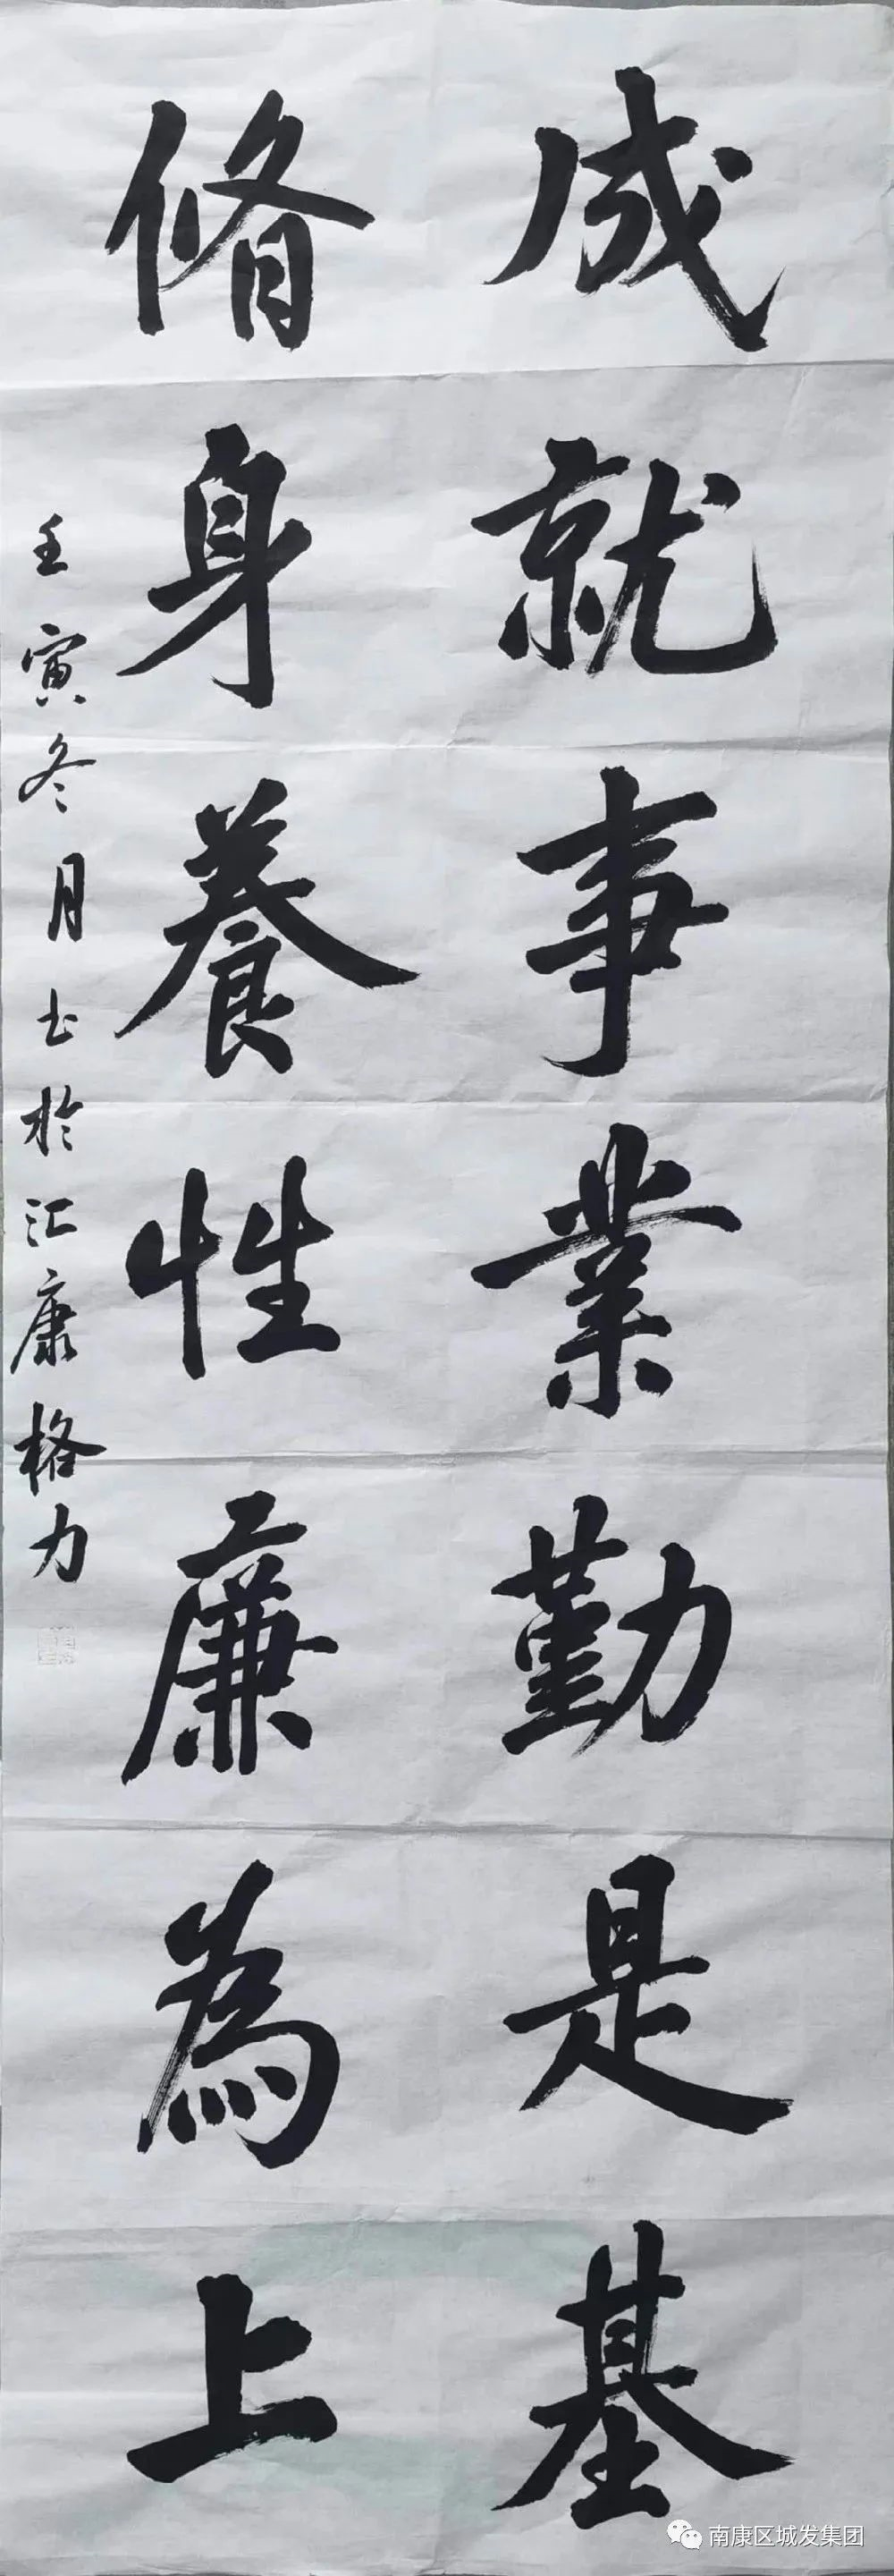 成就事業勤是基
脩身養性廉為上
壬寅冬月书於汇康格力
南康区城发集团